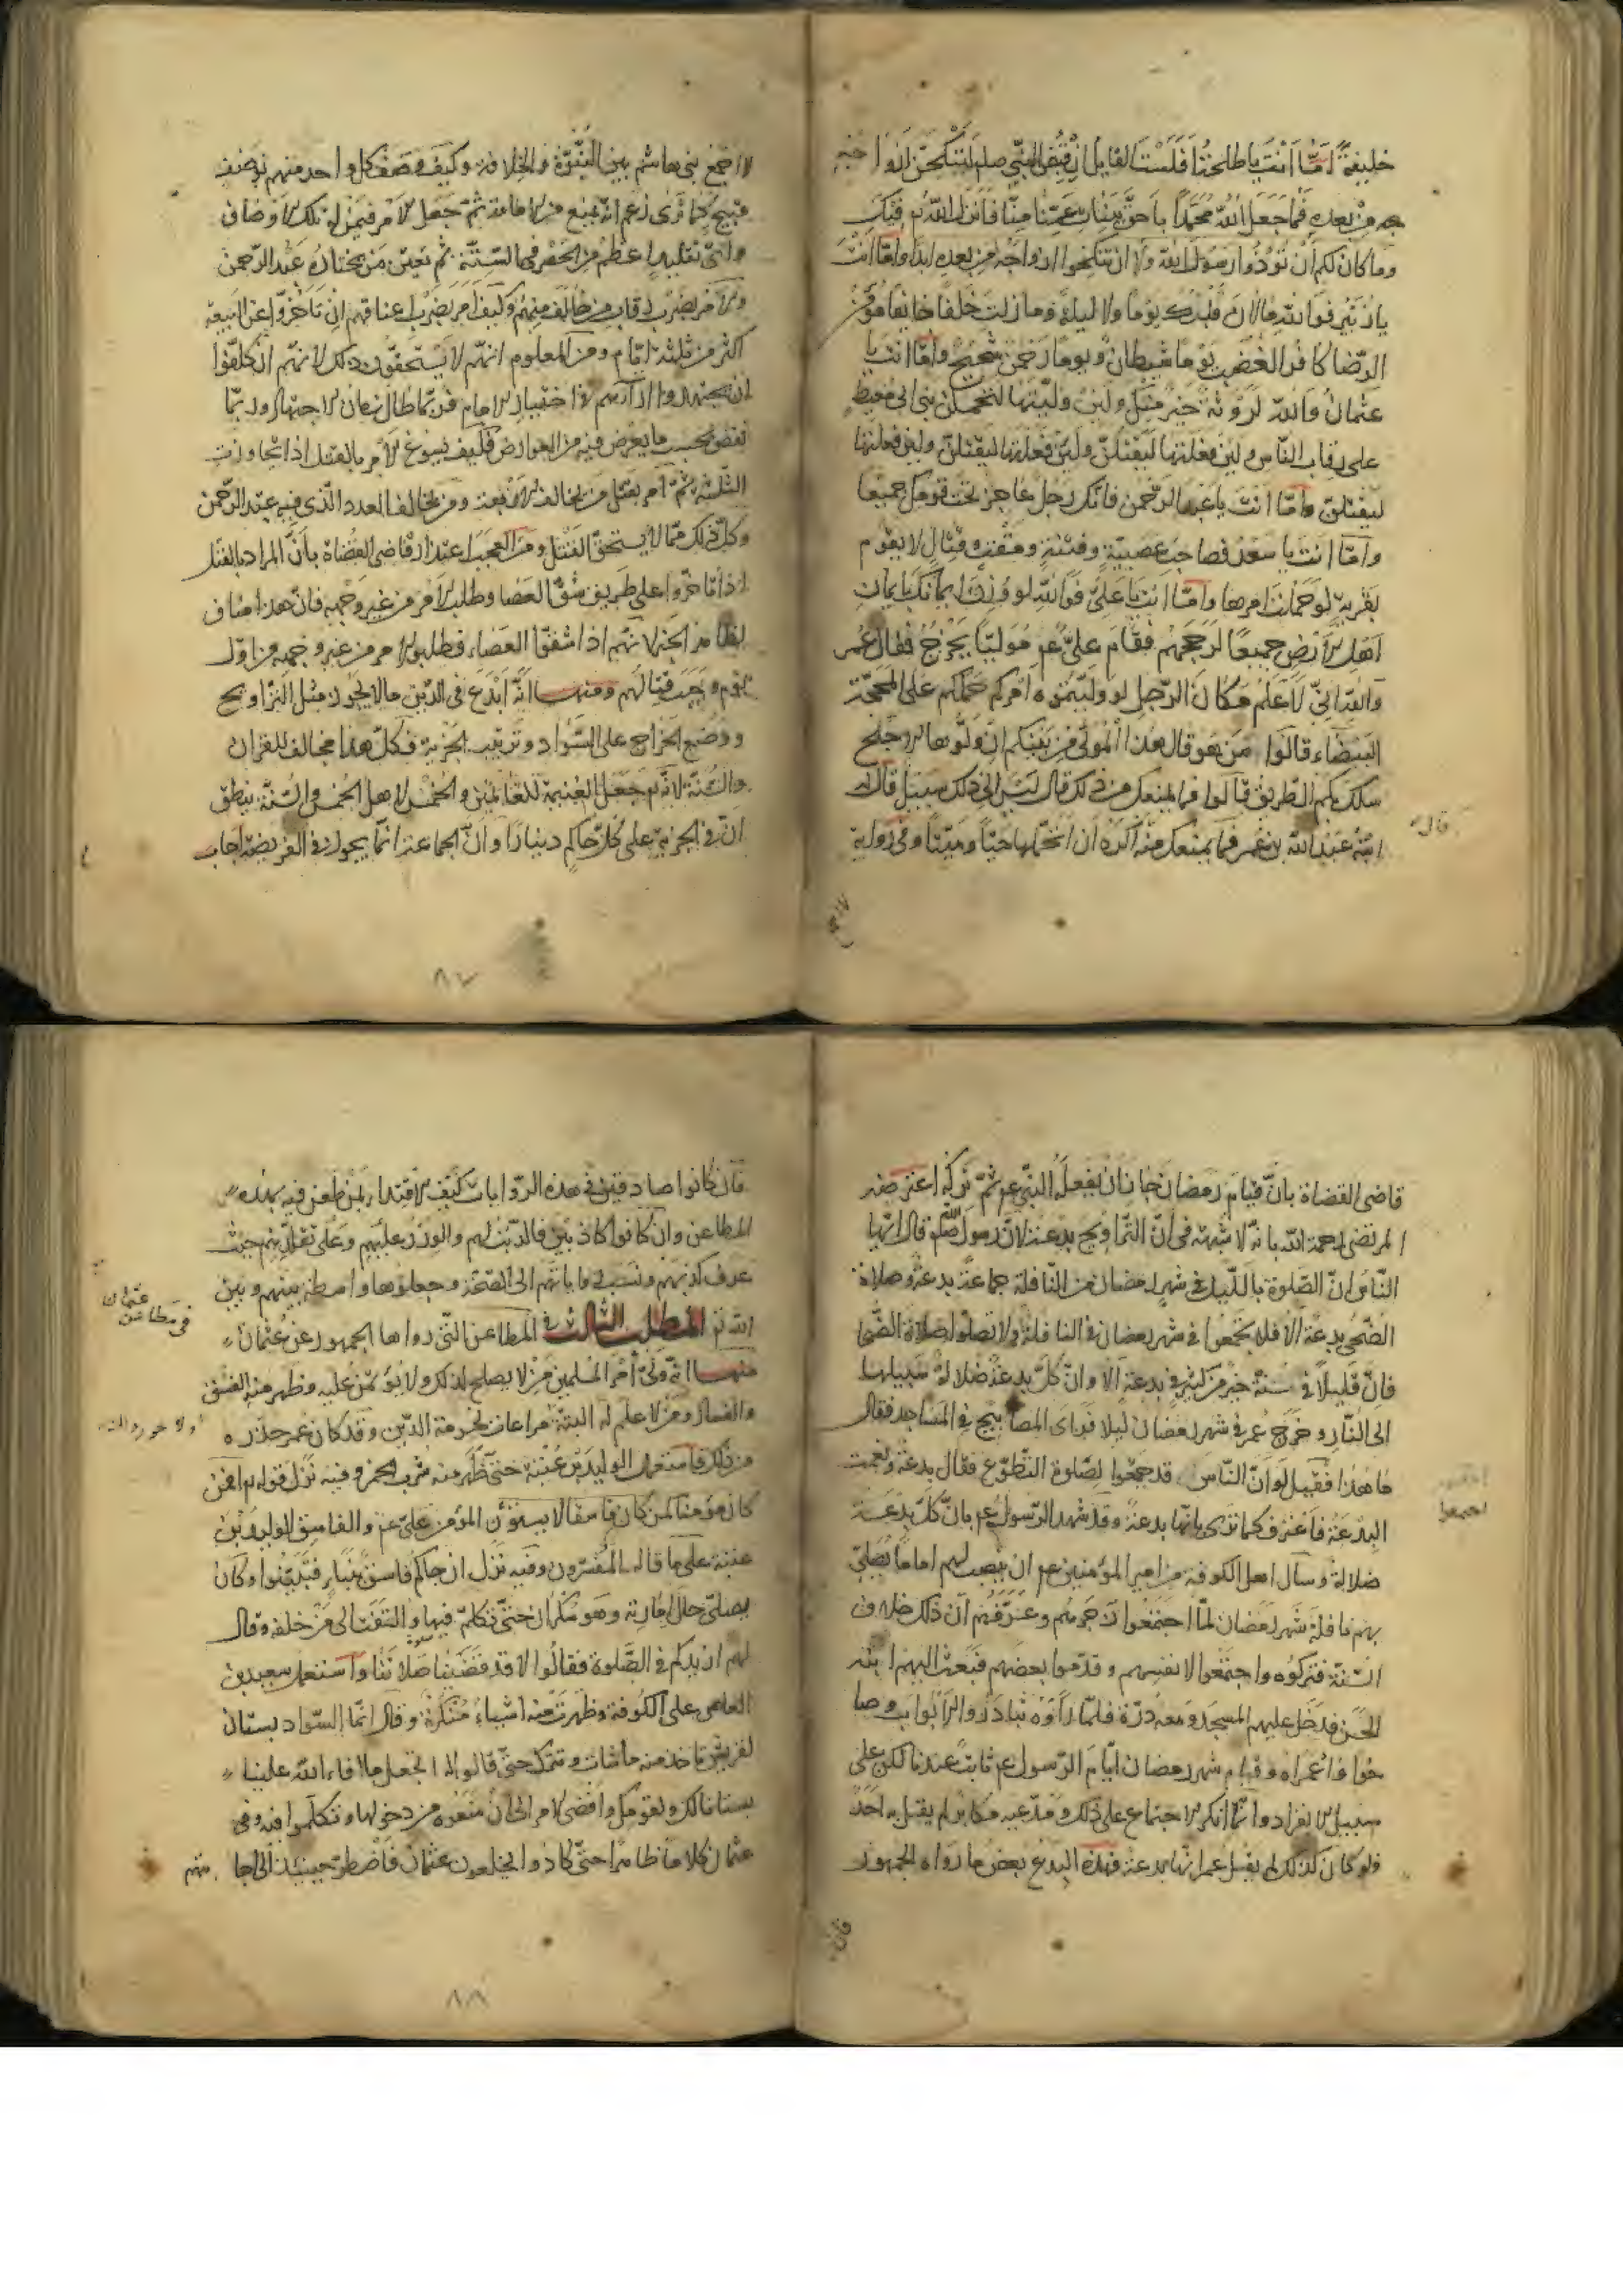 خليفة امّا انت يا طلحة افلست القايل ان قبض النبي صلم لننكحن ازوا
جه من بعده فما جعل الله محمدا باحق ببنات عمنا منا فانزل الله تم فيك
وما كان لكم ان تؤذوا رسول الله ولا ان تنكحوا ازواجه من بعده ابدا وامّا انت
يا زبير فوالله ما لان قلبك يوما ولا ليلة وما زلت جلفا جافيا مؤمن
الرضا كافر الغضب يوما شيطان ويوما رحمن شحيح وامّا انت يا
عثمان والله لروثة خير منك ولئن وليتها لتحملن بني ابي معيط
على رقاب الناس ولئن فعلتها ليقتلن ولئن فعلتها ليقتلن ولئن فعلتها
ليقتلن وامّا انت يا عبد الرحمن فانك رجل عاجز تحب قومك جميعا
وامّا انت يا سعد فصاحب عصبية وفتنة ومقنب وقتال لا يقوم
بقرية لو حملت امرها وامّا انت يا علي فوالله لو وزن ايمانك بايمان
اهل الارض جميعا لرجحهم فقام علي عم موليا يخرج فقال عمر
والله اني لاعلم مكان الرجل لو وليتموه امركم حملكم على المحجة
البيضاء قالوا من هو قال هذا المولى من بينكم ان ولوها الاجلح
سلك بكم الطريق قالوا فما يمنعك من ذلك قال ليس الى ذلك سبيل قال له
ابنه عبد الله بن عمر فما يمنعك منه قال اكره ان اتحملها حيا وميتا وفي رواية
قال
لا اجمع
لا اجمع لبني هاشم بين النبوة والخلافة وكيف وصف كل واحد منهم بوصف
قبيح كما ترى زعم انه يمنع من الامامة ثم جعل الامر فيمن له تلك الاوصاف
واي تقليد اعظم من الحصر في الستة ثم تعيين من يختاره عبد الرحمن
والامر بضرب رقاب من خالف منهم وكيف امر بضرب اعناقهم ان تاخروا عن البيعة
اكثر من ثلثة ايام ومن المعلوم انهم لا يستحقون ذلك لانهم ان كلفوا
ان يجتهدوا ارآءهم في اختيار الامام فربما طال زمان الاجتهاد وربما
نقص بحسب ما يعرض فيه من العوارض فكيف يسوغ الامر بالقتل اذا تجاوزت
الثلثة ثم امر بقتل من يخالف الاربعة ومن يخالف العدد الذي فيه عبد الرحمن
وكل ذلك مما لا يستحق القتل ومن العجب اعتذار قاضي القضاة بان المراد بالقتل
اذا تاخروا على طريق شق العصا وطلب الامر من غير وجهه فان هذا مناف
لظاهر الخبر لانهم اذا شقوا العصاء وطلبوا الامر من غير وجهه من اول
يوم وجب قتالهم ومنها انه ابدع في الدين ما لا يجوز مثل التراويح
ووضع الخراج على السواد وترتيب الجزية فكل هذا مخالف للقران
والسنة لانه تم جعل الغنيمة للغانمين والخمس لاهل الخمس والسنة ينطق
ان في الجزية على كل حاكم دينارا وان الجماعة انما يجوز في الفريضة اجاب
٨٧
قاضي القضاة بان قيام رمضان جاز ان يفعله النبي عم ثم تركه اعترضه
المرتضى رحمة الله بانه لا شبهة في ان التراويح بدعة لان رسول الله صلم قال ايها
الناس ان الصلوة بالليل في شهر رمضان من النافلة جماعة بدعة وصلاة
الضحى بدعة الا فلا تجتمعوا في شهر رمضان في النافلة ولا تصلوا صلاة الضحى
فان قليلا في سنة خير من كثير في بدعة الا وان كل بدعة ضلالة سبيلها
الى النار وخرج عمر في شهر رمضان ليلا فراى المصابيح في المساجد فقال
ما هذا فقيل له ان الناس قد جمعوا لصلوة التطوع فقال بدعة ونعمت
البدعة فاعترف كما ترى بانها بدعة وقد شهد الرسول عم بان كل بدعة
ضلالة وسال اهل الكوفة من امير المؤمنين عم ان ينصب لهم اماما يصلي
بهم نافلة شهر رمضان لما اجتمعوا زجرهم وعرفهم ان ذلك خلاف
السنة فتركوه واجتمعوا لانفسهم وقدموا بعضهم فبعث اليهم ابنه
الحسن فدخل عليهم المسجد ومعه درة فلما راوه تبادروا الابواب وصا
حوا واعمراه وقيام شهر رمضان ايام الرسول عم ثابت عندنا لكن على
سبيل الانفراد وانما انكر الاجتماع على ذلك ومدعيه مكابر لم يقبل به احد
ولو كان كذلك لم يقبل عمر انها بدعة فهذه البدع بعض ما رواه الجمهور
اجتمعوا
فان
فان كانوا صادقين في هذه الروايات كيف الاقتداء بمن طعن فيه بهذه
المطاعن وان كانوا كاذبين فالذنب لهم والوزر عليهم وعلى تقليدهم حيث
عرف كذبهم ونسب رواياتهم الى الصحة وجعلوها واسطة بينهم وبين
الله تم المطلب الثالث في المطاعن التي رواها الجمهور عن عثمان
منها انه ولى امر المسلمين من لا يصلح لذلك ولا يؤتمن عليه وظهر منه الفسق
والفساد ومن لا علم له البتة مراعات لحرمة الدين وقد كان عمر حذره
من ذلك فاستعمل الوليد بن عتبة حتى ظهر منه شرب الخمر وفيه نزل قوله تم افمن
كان مؤمنا كمن كان فاسقا لا يستوون المؤمن علي عم والفاسق الوليد بن
عتبة على ما قاله المفسرون وفيه نزل ان جاكم فاسق بنباء فتبينوا وكان
يصلي حال امارته وهو سكران حتى تكلم فيها والتفت الى من خلفه وقال
لهم ازيدكم في الصلوة فقالوا لا قد قضينا صلاتنا واستعمل سعيد بن
العاص على الكوفة وظهرت منه اشياء منكرة وقال انما السواد بستان
لقريش تاخذ منه ما شات وتترك حتى قالوا له اتجعل ما افاء الله علينا
بستانا لك ولقومك وافضى الامر الى ان منعوه من دخولها وتكلموا فيه وفي
عثمان كلاما ظاهرا حتى كادوا يخلعون عثمان فاضطر حينئذ الى اجا
في مطاعن عثمان
٨٨